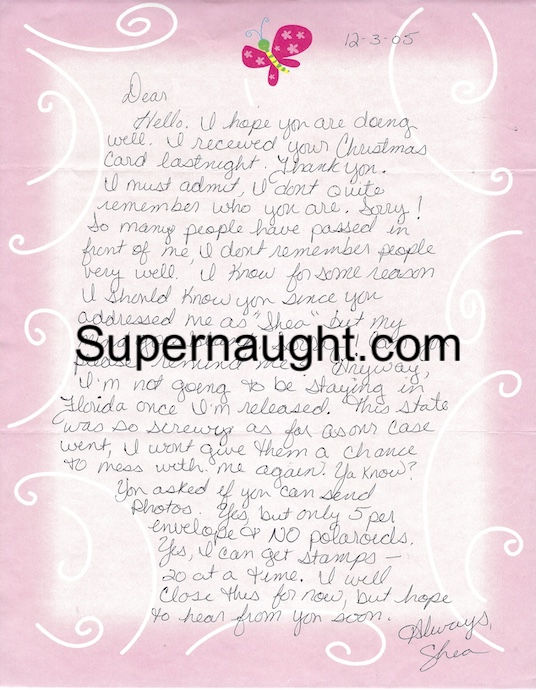 12-3-05
Dear
Hello. I hope you are doing
well. I received your Christmas
Card lastnight. Thank you.
I must admit, I dont quite
remember who you are. Sorry!
So many people have passed in
front of me, I dont remember people
very well. I know for some reason
I should know you since you
addressed me as "Shea" but my
Supernaught.com
please remind me. Anyway,
I'm not going to be staying in
Florida once I'm released. This state
was so screwy as far as our case
went, I wont give them a chance
to mess with me again. Ya know?
You asked if you can send
photos. Yes, but only 5 per
envelope & NO polaroids.
Yes, I can get stamps –
20 at a time. I will
close this for now, but hope
to hear from you soon.
Always,
Shea